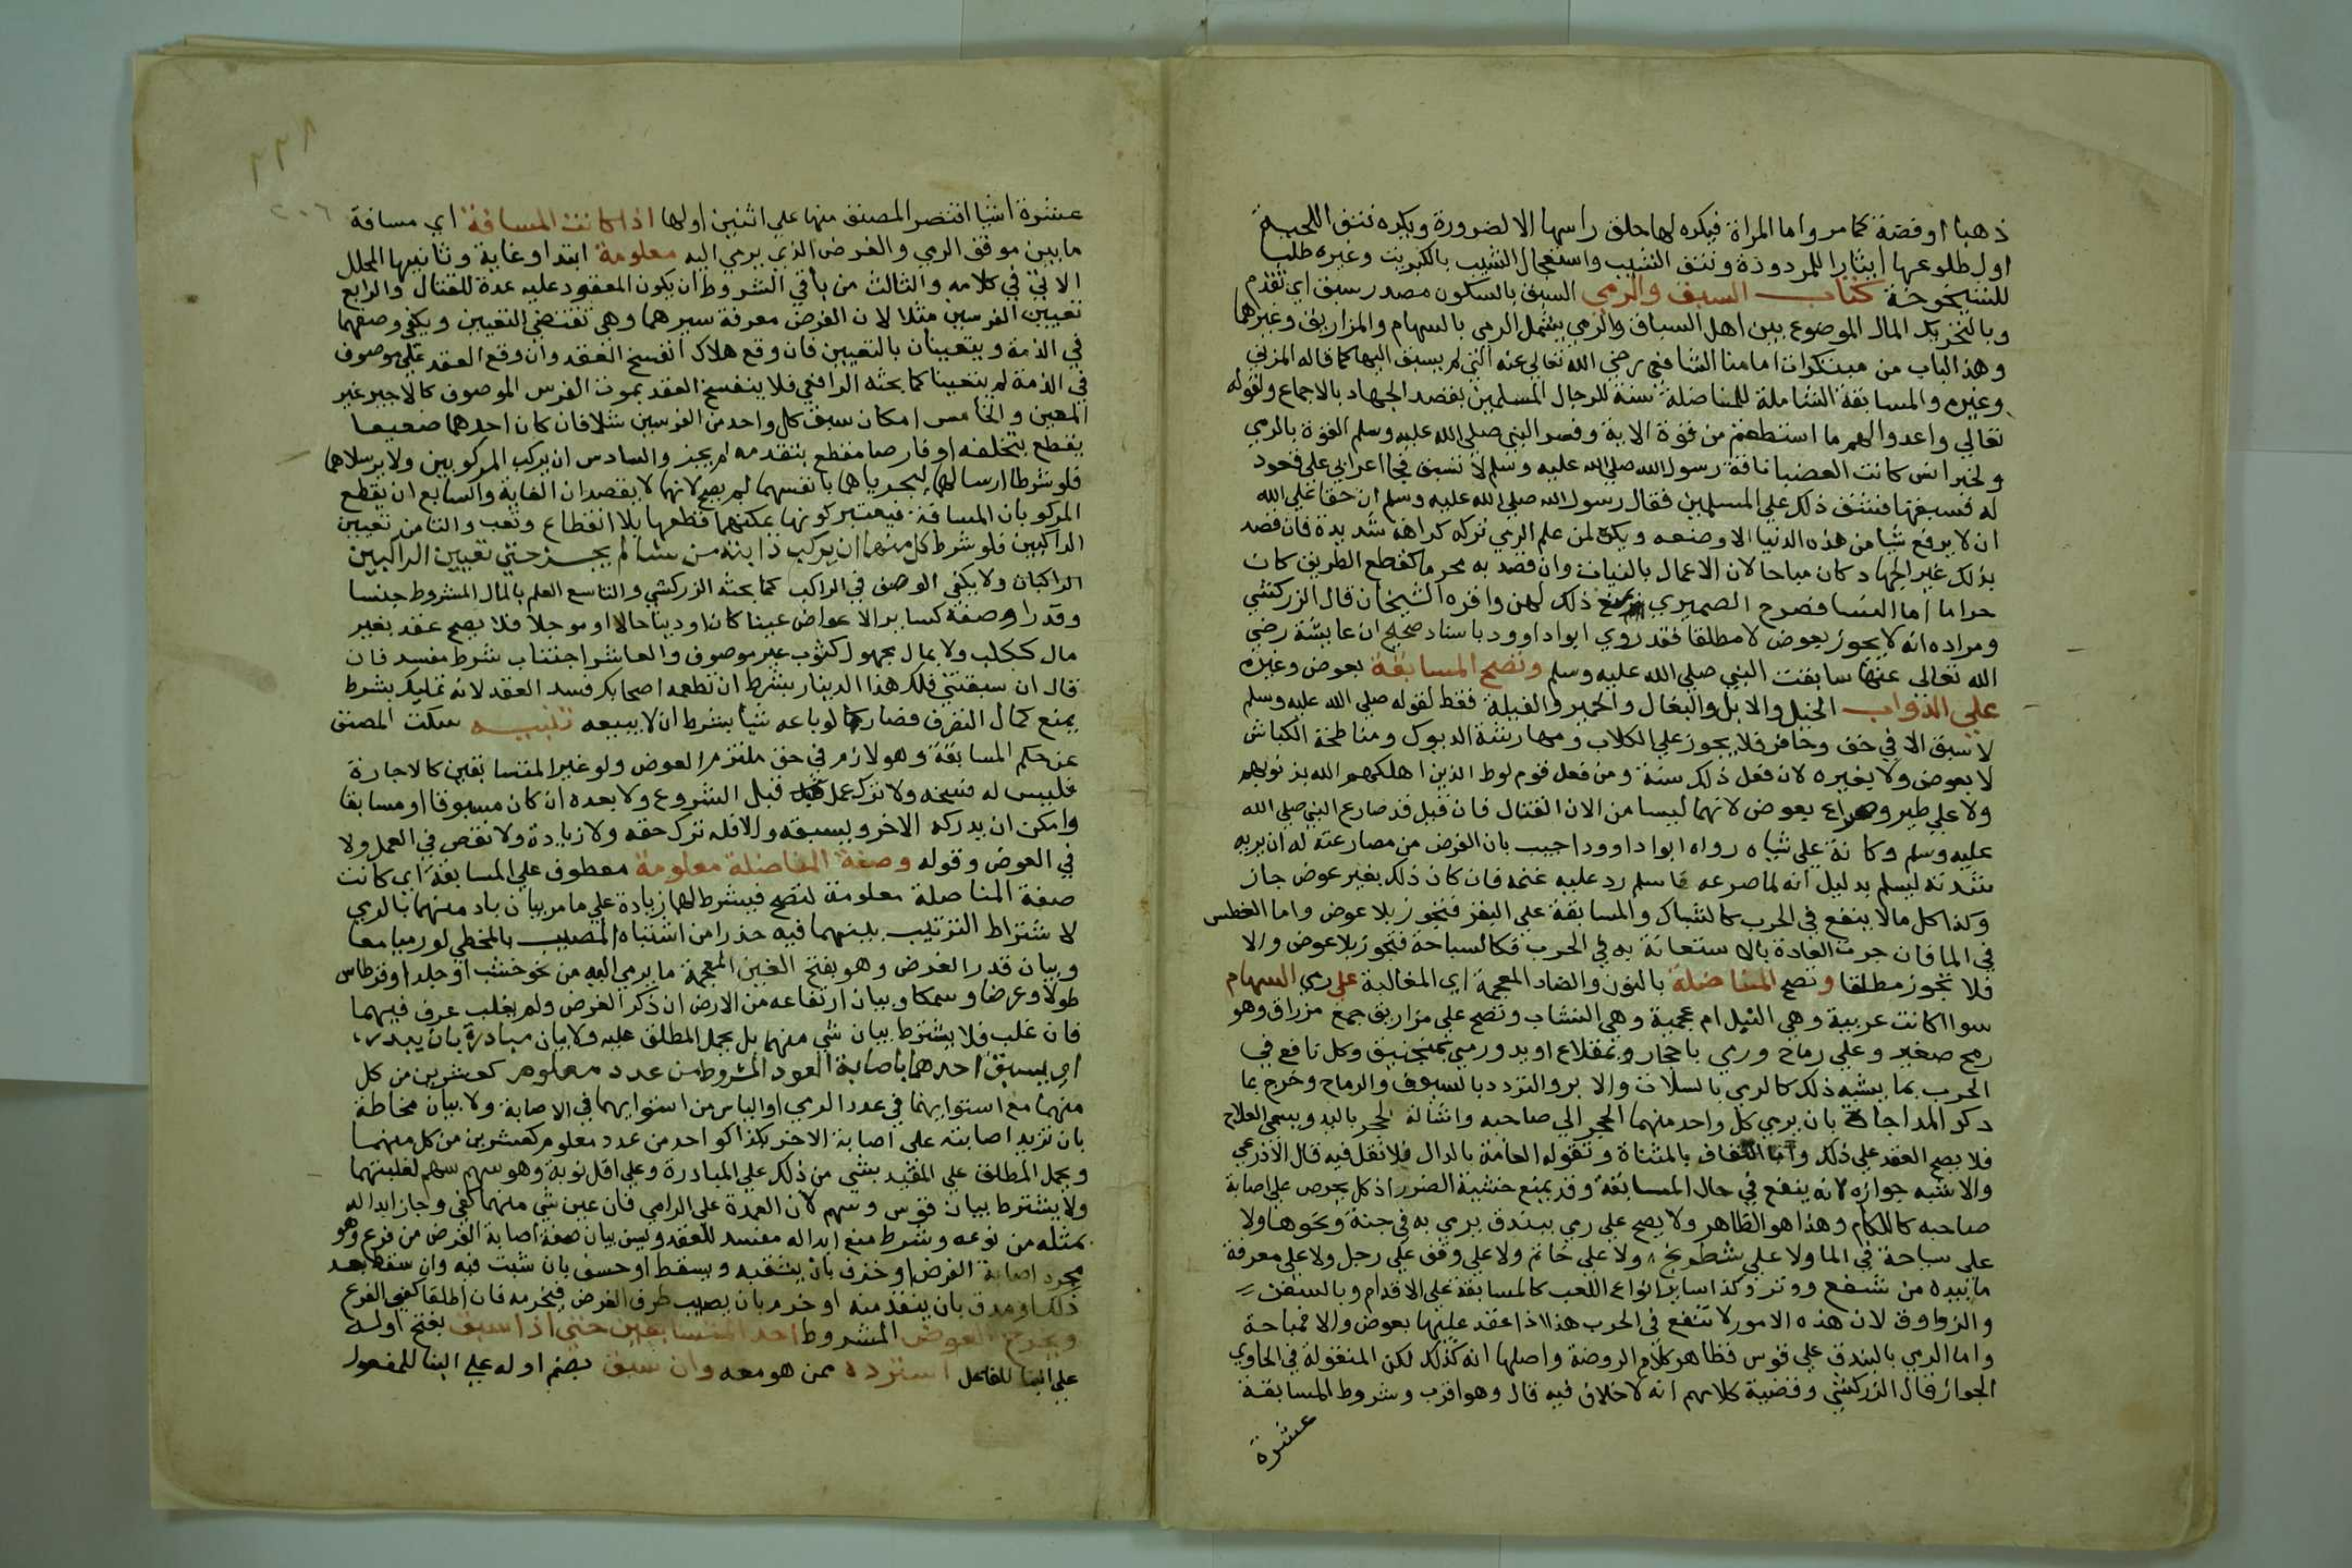 ذهبا او فضة كما مر واما المراة فيكره لها حلق راسها الا لضرورة ويكره نتف اللحية
اول طلوعها ايثارا للمرودة ونتف الشيب واستعجال الشيب بالكبريت وغيره طلبا
للشيخوخة كتاب السبق والرمي السبق بالسكون مصدر سبق اي تقدم
وبالتحريك المال الموضوع بين اهل السباق والرمي يشمل الرمي بالسهام والمزاريق وغيرهما
وهذا الباب من مبتكرات امامنا الشافعي رضي الله تعالى عنه التي لم يسبق اليها كما قاله المزني
وغيره والمسابقة الشاملة للمناضلة سنة للرجال المسلمين بقصد الجهاد بالاجماع ولقوله
تعالي واعدوا لهم ما استطعتم من قوة الاية وفسر النبي صلى الله عليه وسلم القوة بالرمي
ولخبر انس كانت العضبا ناقة رسول الله صلى الله عليه وسلم لا تسبق فجا اعرابي علي قعود
له فسبقها فشق ذلك علي المسلمين فقال رسول الله صلي الله عليه وسلم ان حقا علي الله
ان لا يرفع شيا من هذه الدنيا الا وضعه ويكره لمن علم الرمي تركه كراهة شديدة فان قصد
بذلك غير الجهاد كان مباحا لان الاعمال بالنيات وان قصد به محرما كقطع الطريق كان
حراما اما النسا فصرح الصميري بمنع ذلك لهن واقره الشيخان قال الزركشي
ومراده انه لا يجوز بعوض لا مطلقا فقد روي ابو داوود باسناد صحيح ان عايشة رضي
الله تعالى عنها سابقت النبي صلي الله عليه وسلم وتصح المسابقة بعوض وغيره
علي الدواب الخيل والابل والبغال والحمير والفيلة فقط لقوله صلي الله عليه وسلم
لا سبق الا في خف وحافر فلا يجوز علي الكلاب ومهارشة الديوك ومناطحة الكباش
لا بعوض ولا بغيره لان فعل ذلك سفه ومن فعل قوم لوط الذين اهلكهم الله بذنوبهم
ولا علي طير وصراع بعوض لانهما ليسا من الات القتال فان قيل قد صارع النبي صلي الله
عليه وسلم ركانة علي شياه رواه ابو داوود اجيب بان الغرض من مصارعته له ان يريه
شدته ليسلم بدليل انه لما صرعه فاسلم رد عليه غنمه فان كان ذلك بغير عوض جاز
وكذا كل ما لا ينفع في الحرب كالشباك والمسابقة علي البقر فتجوز بلا عوض واما الغطس
في الما فان جرت العادة بالاستعانة به في الحرب فكالسباحة فتجوز بلا عوض والا
فلا تجوز مطلقا وتصح المناضلة بالنون والضاد المعجمة اي المغالبة علي رمي السهام
سوا اكانت عربية وهي النبل ام عجمية وهي النشاب وتصح علي مزاريق جمع مزراق وهو
رمح صغير وعلي رماح ورمي باحجار وبمقلاع او يد ورمي بمنجنيق وكل نافع في
الحرب بما يشبه ذلك كالرمي بالمسلات والابر والتردد بالسيوف والرماح وخرج بما
ذكر المداحاة بان يرمي كل واحد منهما الحجر الي صاحبه واشالة الحجر باليد ويسمي العلاج
فلا يصح العقد علي ذلك واما الثقاف بالمثناة وتقوله العامة بالدال فلا نقل فيه قال الاذرعي
والاشبه جوازه لانه ينفع في حال المسابقة وقد يمنع خشية الضرر اذ كل يحرص علي اصابة
صاحبه كاللكام وهذا هو الظاهر ولا يصح علي رمي ببندق يرمي به في حفة ونحوها ولا
علي سباحة في الما ولا علي شطرنج ولا علي خاتم ولا علي وقف علي رجل ولا علي معرفة
ما بيده من شفع ووتر وكذا ساير انواع اللعب كالمسابقة علي الاقدام وبالسفن
والزوارق لان هذه الامور لا تنفع في الحرب هذا اذا عقد عليها بعوض والا فمباحة
واما الرمي بالبندق علي قوس فظاهر كلام الروضة واصلها انه كذلك لكن المنقول في الحاوي
الجواز قال الزركشي وقضية كلامهم انه لا خلاف فيه قال وهو اقرب وشروط المسابقة
عشرة
٢٣٨
٢٠٦
عشرة اشيا اقتصر المصنف منها علي اثنين اولها اذا كانت المسافة اي مسافة
ما بين موقف الرمي والغرض الذي يرمي اليه معلومة ابتدا وغاية وثانيها المحلل
الاتي في كلامه والثالث من باقي الشروط ان يكون المعقود عليه عدة للقتال والرابع
تعيين الفرسين مثلا لان الغرض معرفة سيرهما وهي تقتضي التعيين ويكفي وصفهما
في الذمة ويتعينان بالتعيين فان وقع هلاك انفسخ العقد وان وقع العقد علي موصوف
في الذمة لم يتعينا كما بحثه الرافعي فلا ينفسخ العقد بموت الفرس الموصوف كالاجير غير
المعين والخامس امكان سبق كل واحد من الفرسين مثلا فان كان احدهما ضعيفا
يقطع بتخلفه او فارها يقطع بتقدمه لم يجز والسادس ان يركب المركوبين ولا يرسلاهما
فلو شرطا ارسالهما ليجريا هما بانفسهما لم يصح لانها لا يقصدان الغاية والسابع ان يقطع
المركوبان المسافة فيعتبر كونها يمكنهما قطعها بلا انقطاع وتعب والثامن تعيين
الراكبين فلو شرط كل منهما ان يركب دابته من شا لم يجز حتي تعيين الراكبين
الراكبان ولا يكفي الوصف في الراكب كما بحثه الزركشي والتاسع العلم بالمال المشروط جنسا
وقدرا وصفة كساير الاعواض عينا كان او دينا حالا او موجلا فلا يصح عقد بغير
مال ككلب ولا بمال مجهول كثوب غير موصوف والعاشر اجتناب شرط مفسد فان
قال ان سبقتني فلك هذا الدينار بشرط ان تطعمه اصحابك فسد العقد لانه تمليك بشرط
يمنع كمال التصرف فصار كما لو باعه شيا بشرط ان لا يبيعه تنبيه سكت المصنف
عن حكم المسابقة وهو لازم في حق ملتزم العوض ولو غير المتسابقين كالاجارة
فليس له فسخه ولا ترك عمل قبل الشروع ولا بعده ان كان مسبوقا او سابقا
وامكن ان يدركه الاخر ويسبقه والا فله ترك حقه ولا زيادة ولا نقص في العمل ولا
في العوض وقوله وصفة المناضلة معلومة معطوف علي المسابقة اي كانت
صفة المناضلة معلومة لتصح فيشرط لها زيادة علي ما مر بيان باد منهما بالرمي
لاشتراط الترتيب بينهما فيه حذرا من اشتباه المصيب بالمخطي لو رميا معا
وبيان قدر الغرض وهو بفتح الغين المعجمة ما يرمي اليه من نحو خشب او جلد او قرطاس
طولا وعرضا وسمكا وبيان ارتفاعه من الارض ان ذكر الغرض ولم يغلب عرف فيهما
فان غلب فلا يشترط بيان شي منهما بل يحمل المطلق عليه ولا بيان مبادرة بان يبدر
اي يسبق احدهما باصابة العدد المشروط من عدد معلوم كعشرين من كل
منهما مع استوايهما في عدد الرمي او الياس من استوايهما في الاصابة ولا بيان محاطة
بان تزيد اصابته علي اصابة الاخر بكذا كواحد من عدد معلوم كعشرين من كل منهما
ويحمل المطلق علي التقييد بشي من ذلك علي المبادرة وعلي اقل نوبة وهو سهم سهم لغلبتهما
ولا يشترط بيان قوس وسهم لان العمدة علي الرامي فان عين شي منهما كفي وجاز ابداله
بمثله من نوعه وشرط منع ابداله مفسد للعقد ويسن بيان صفة اصابة الغرض من قرع وهو
مجرد اصابة الغرض او خزق بان يثقبه ويسقط او خسق بان يثبت فيه وان سقط بعد
ذلك او مرق بان ينفذ منه او خرم بان يصيب طرف الغرض فيخرمه فان اطلقا كفي القرع
ويخرج العوض المشروط احد المتسابقين حتي اذا سبق بفتح اوله
علي البنا للفاعل استرده ممن هو معه وان سبق بضم اوله علي البنا للمفعول